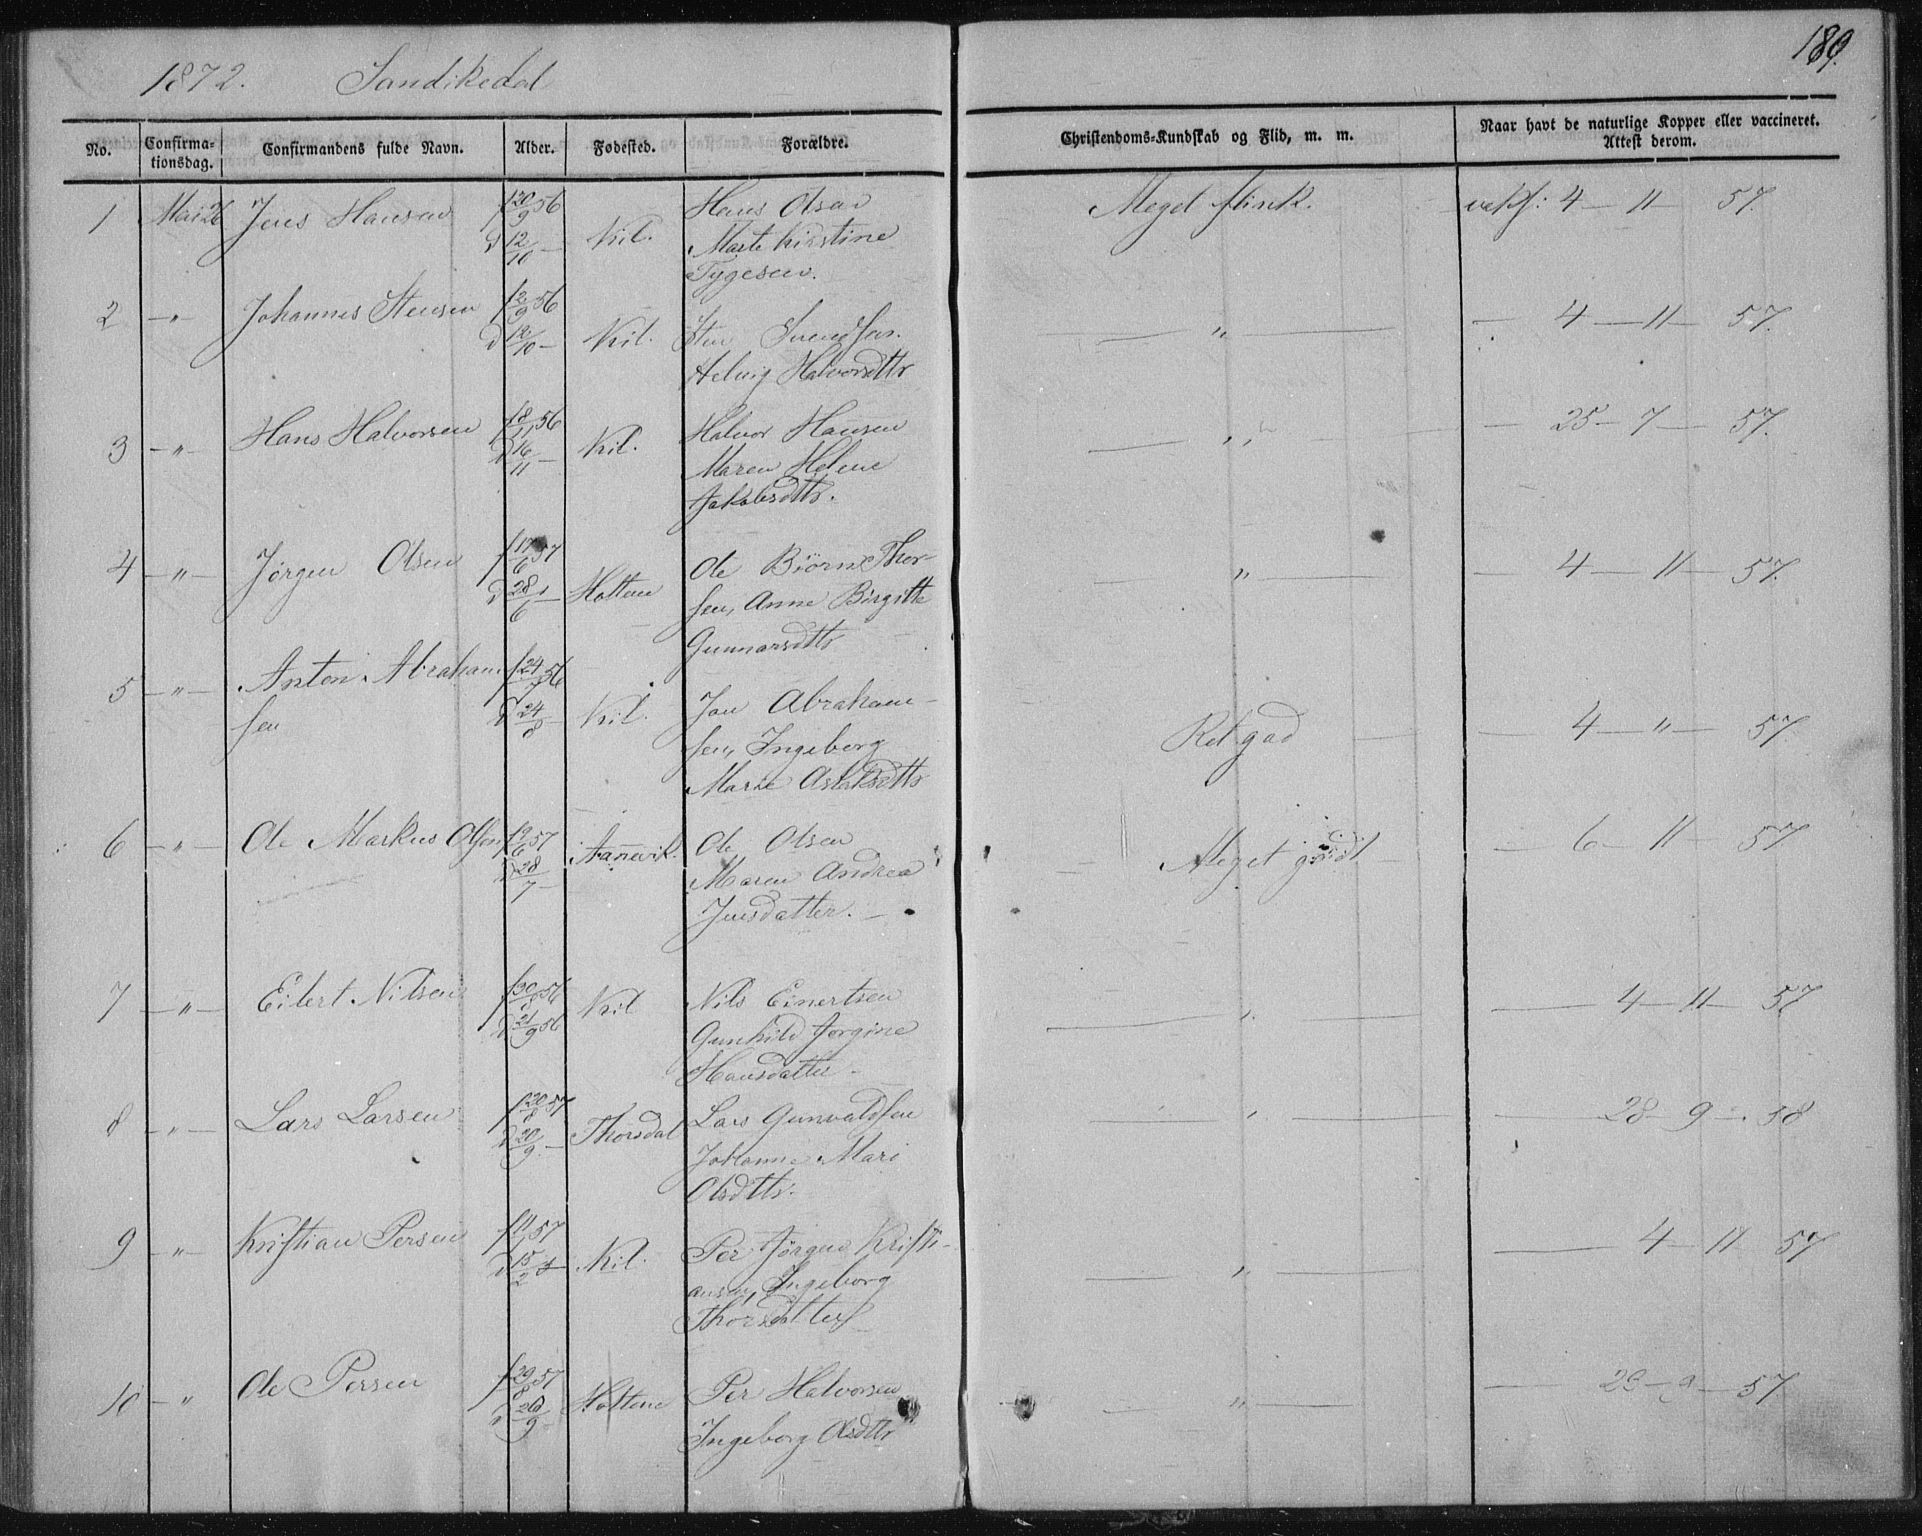 189.
1872. Sandikedal
No.
Confirma-
tionsdag.
Confirmandens fulde Navn.
Alder.
Fødested.
Forældre.
Christendoms-Kundskab og Flid, m. m.
Naar havt de naturlige Kopper eller vaccineret.
Attest derom.
1 Mai 26 Jens Hansen f 20/9 56 Hans Olsen Meget flink. 4 — 11 — 57.
d 12/10 — Kil. Marte Kirstine
Tygesen.
2 — " — Johannes Stensen f 2/9 56
d 12/10 — Kil. Sten Svendsen. — " — — 4 — 11 — 57.
Helvig Halvorsdttr
3 — " — Hans Halvorsen f 8/11 56 Halvor Hansen — " — — 25 — 7 — 57.
d 16/11 — Kil. Maren Helene
Jakobsdttr.
4 — " — Jørgen Olsen f 17/6 57 Ole Biørn Thor- — " — — 4 — 11 — 57.
d 28/6 — Holtene sen, Anne Birgitte
Gunnarsdttr
5 — " — Anton Abraham- f 24/7 56
sen d 24/8 — Kil. Jan Abraham- Ret god — 4 — " — 57
sen, Ingeborg
Marie Aslaksdttr
6 — " — Ole Markus Olsen f 2/6 57 Aanevik. Ole Olsen Meget godt — 6 — 11 — 57
d 28/7 — Maren Andrea
Jensdatter. —
7 — " — Eilert Nilsen f 30/8 56 Kil Nils Einertsen — " — — 4 — 11 — 57
d 21/9 56 Gunhild Jorgine
Hansdatter —
8 — " — Lars Larsen f 20/8 57 Lars Gunvaldsen — " — — 28 — 9 — 58
d 20/9 — Thorsdal Johanne Mari
Olsdttr.
9 — " — Kristian Persen 57 Per Jørgen Kristi- — 4 — 11 57
d 15/2 — Kil. ansen, Ingeborg — " —
Thorsdatter
10 — " Ole Persen f 29/8 57 Holtene Per Halvorsen — " — — 29 — 9 — 57.
d 20/9 — Ingeborg Olsdttr